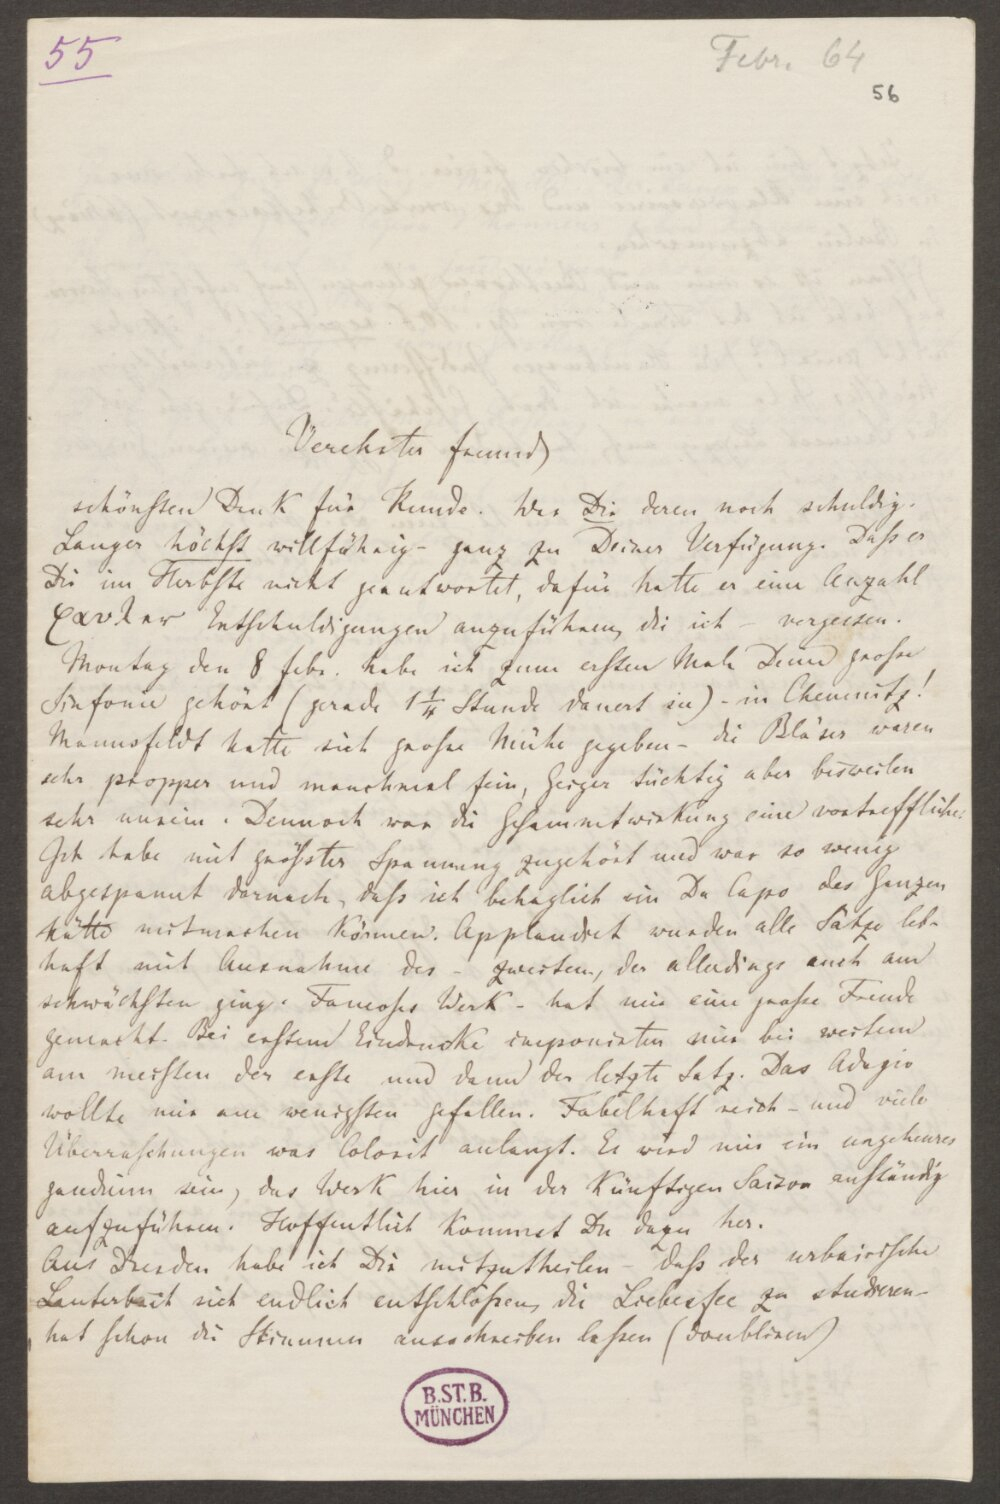 55
Febr. 64
56
Verehrter Freund
schönsten Dank für Kunde. War Dir deren noch schuldig.
Langer höchst willfährig – ganz zu Deiner Verfügung. Dass er
Dir im Herbste nicht geantwortet, dafür hatte er eine Anzahl
Entschuldigungen anzuführen, die ich – vergessen.
Montag den 8 Febr. habe ich zum ersten Male Deine grosse
Sinfonie gehört (gerade 1 1/4 Stunde dauert sie) – in Chemnitz!
Mannsfeldt hatte sich grosse Mühe gegeben – die Bläser waren
sehr propper und manchmal fein, Geiger tüchtig aber bisweilen
sehr unrein. Dennoch war die Gesammtwirkung eine vortreffliche.
Ich habe mit grösster Spannung zugehört und war so wenig
abgespannt darnach, dass ich behaglich ein Da Capo des Ganzen
hätte mitmachen können. Applaudirt wurden alle Sätze leb-
haft mit Ausnahme des – zweiten, der allerdings auch am
schwächsten ging. Famoses Werk – hat mir eine grosse Freude
gemacht. Bei erstem Eindrucke imponirten mir bei weitem
am meisten der erste und dann der letzte Satz. Das Adagio
wollte mir am wenigsten gefallen. Fabelhaft reich – und viele
Überraschungen was Colorit anlangt. Es wird mir ein ungeheures
gaudium sein, das Werk hier in der künftigen Saison anständig
aufzuführen. Hoffentlich kommst Du dazu her.
Aus Dresden habe ich Dir mitzutheilen – dass der urbairische
Lauterbach sich endlich entschlossen, die Liebesfee zu studieren –
hat schon die Stimmen ausschreiben lassen (doubliren)
B.ST.B.
MÜNCHEN